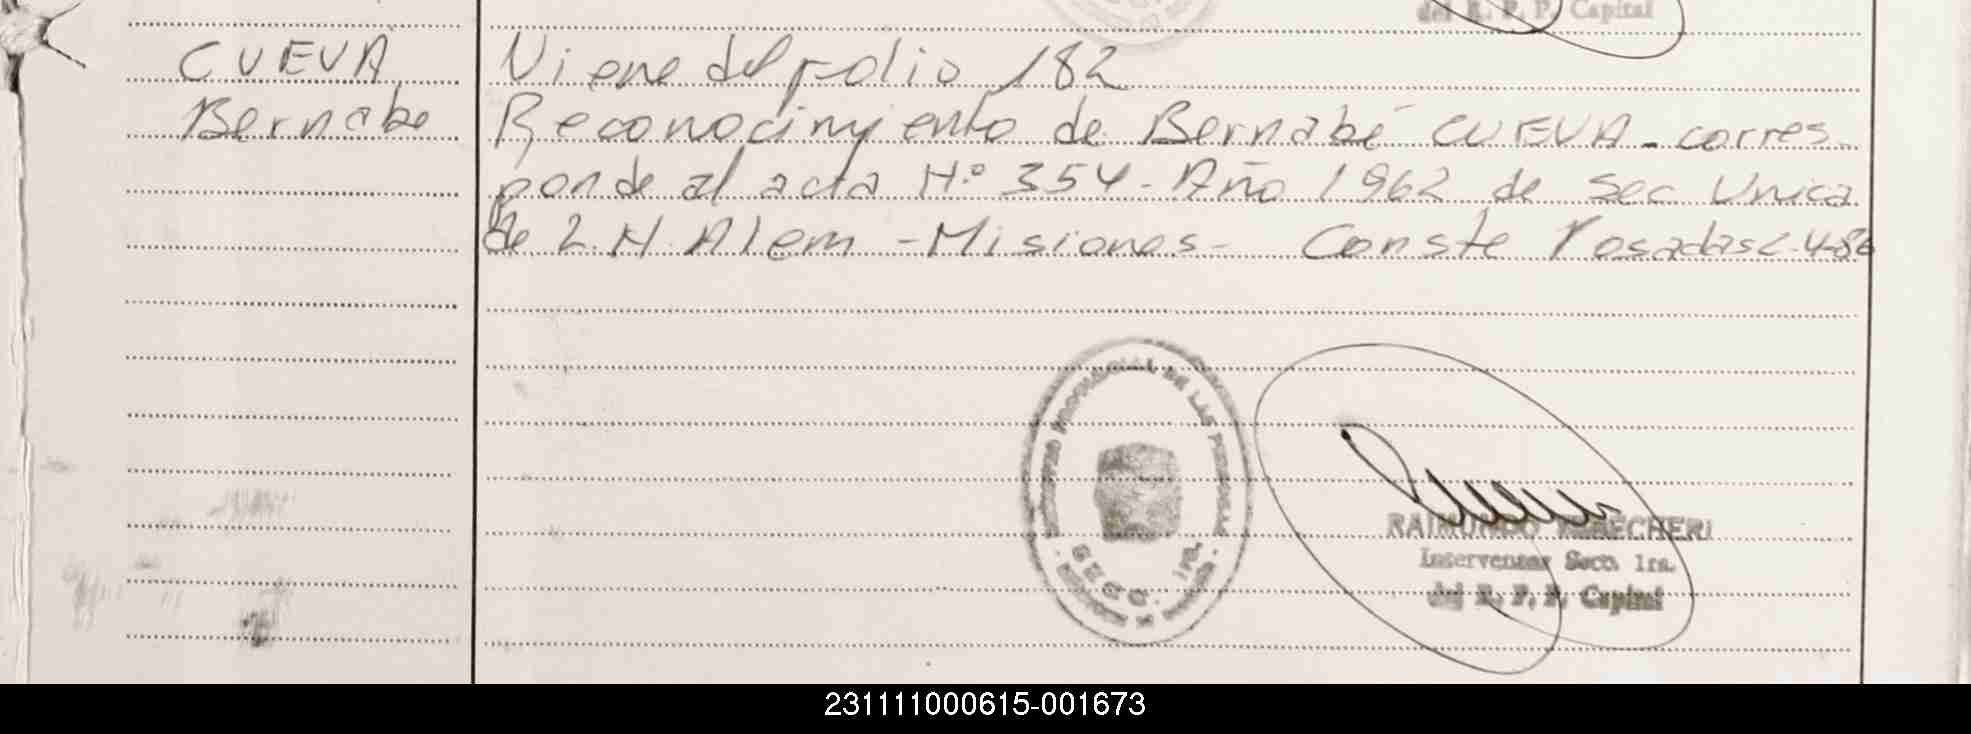 del R. P. P. Capital
CUEVA
Bernabe
Viene del folio 182
Reconocimiento de Bernabé CUEVA - corres-
ponde al acta N.º 354 - Año 1962 de Sec Unica
de L. N. Alem - Misiones - Conste Posadas 2-4-86
REGISTRO PROVINCIAL DE LAS PERSONAS
SECC. 1ra.
RAIMUNDO
Interventor Secc. 1ra.
del R. P. P. Capital
231111000615-001673